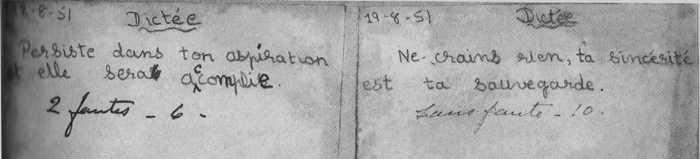 18-8-51 Dictée
Persiste dans ton aspiration
et elle sera accomplie.
2 fautes - 6 -
19-8-51 Dictée
Ne crains rien, ta sincérité
est ta sauvegarde.
Sans faute - 10.